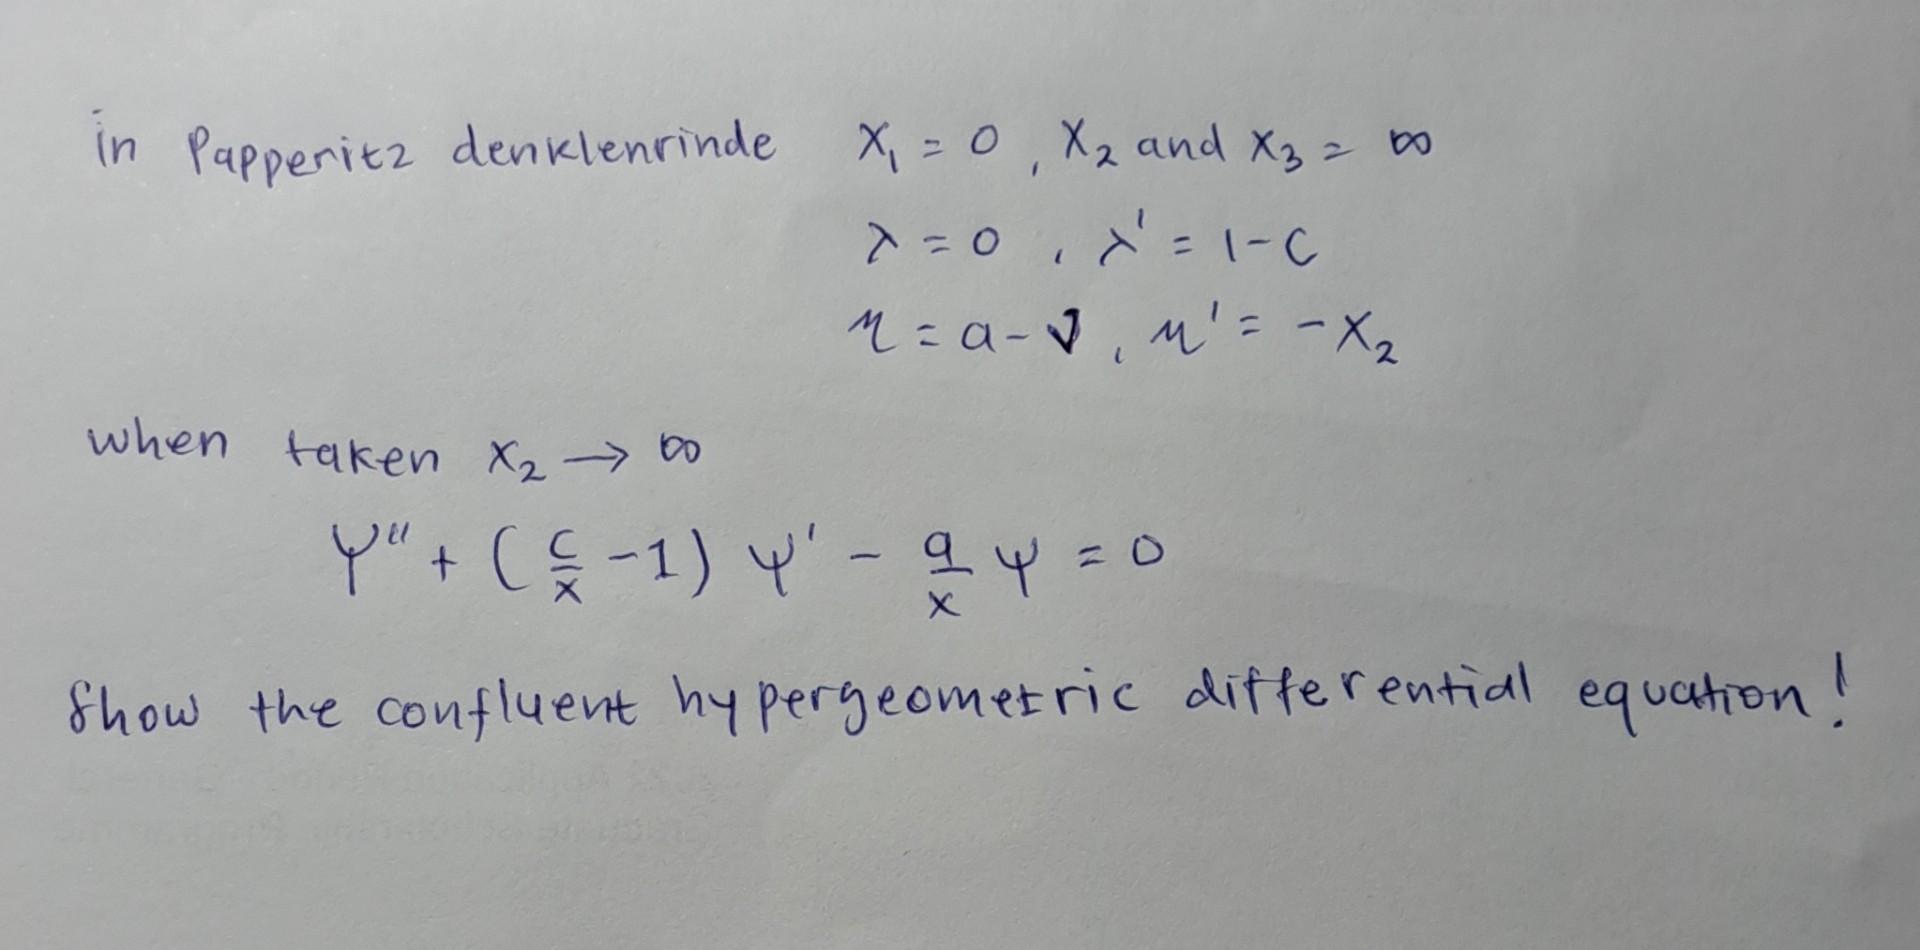 in Papperitz denklenrinde x₁ = 0, x₂ and x₃ = ∞
λ = 0, λ' = 1-c
η = a-ν, μ' = -x₂
when taken x₂ → ∞
ψ'' + (c/x - 1) ψ' - a/x ψ = 0
Show the confluent hypergeometric differential equation!